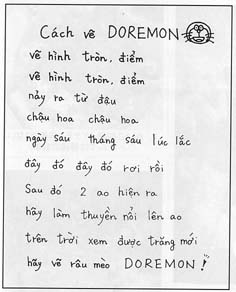 Cách vẽ DOREMON
vẽ hình tròn, điểm
vẽ hình tròn, điểm
nảy ra từ đậu
chậu hoa chậu hoa
ngày sáu tháng sáu lúc lắc
đây đó đây đó rơi rồi
Sau đó 2 ao hiện ra
hãy làm thuyền nổi lên ao
trên trời xem được trăng mới
hãy vẽ râu mèo DOREMON!